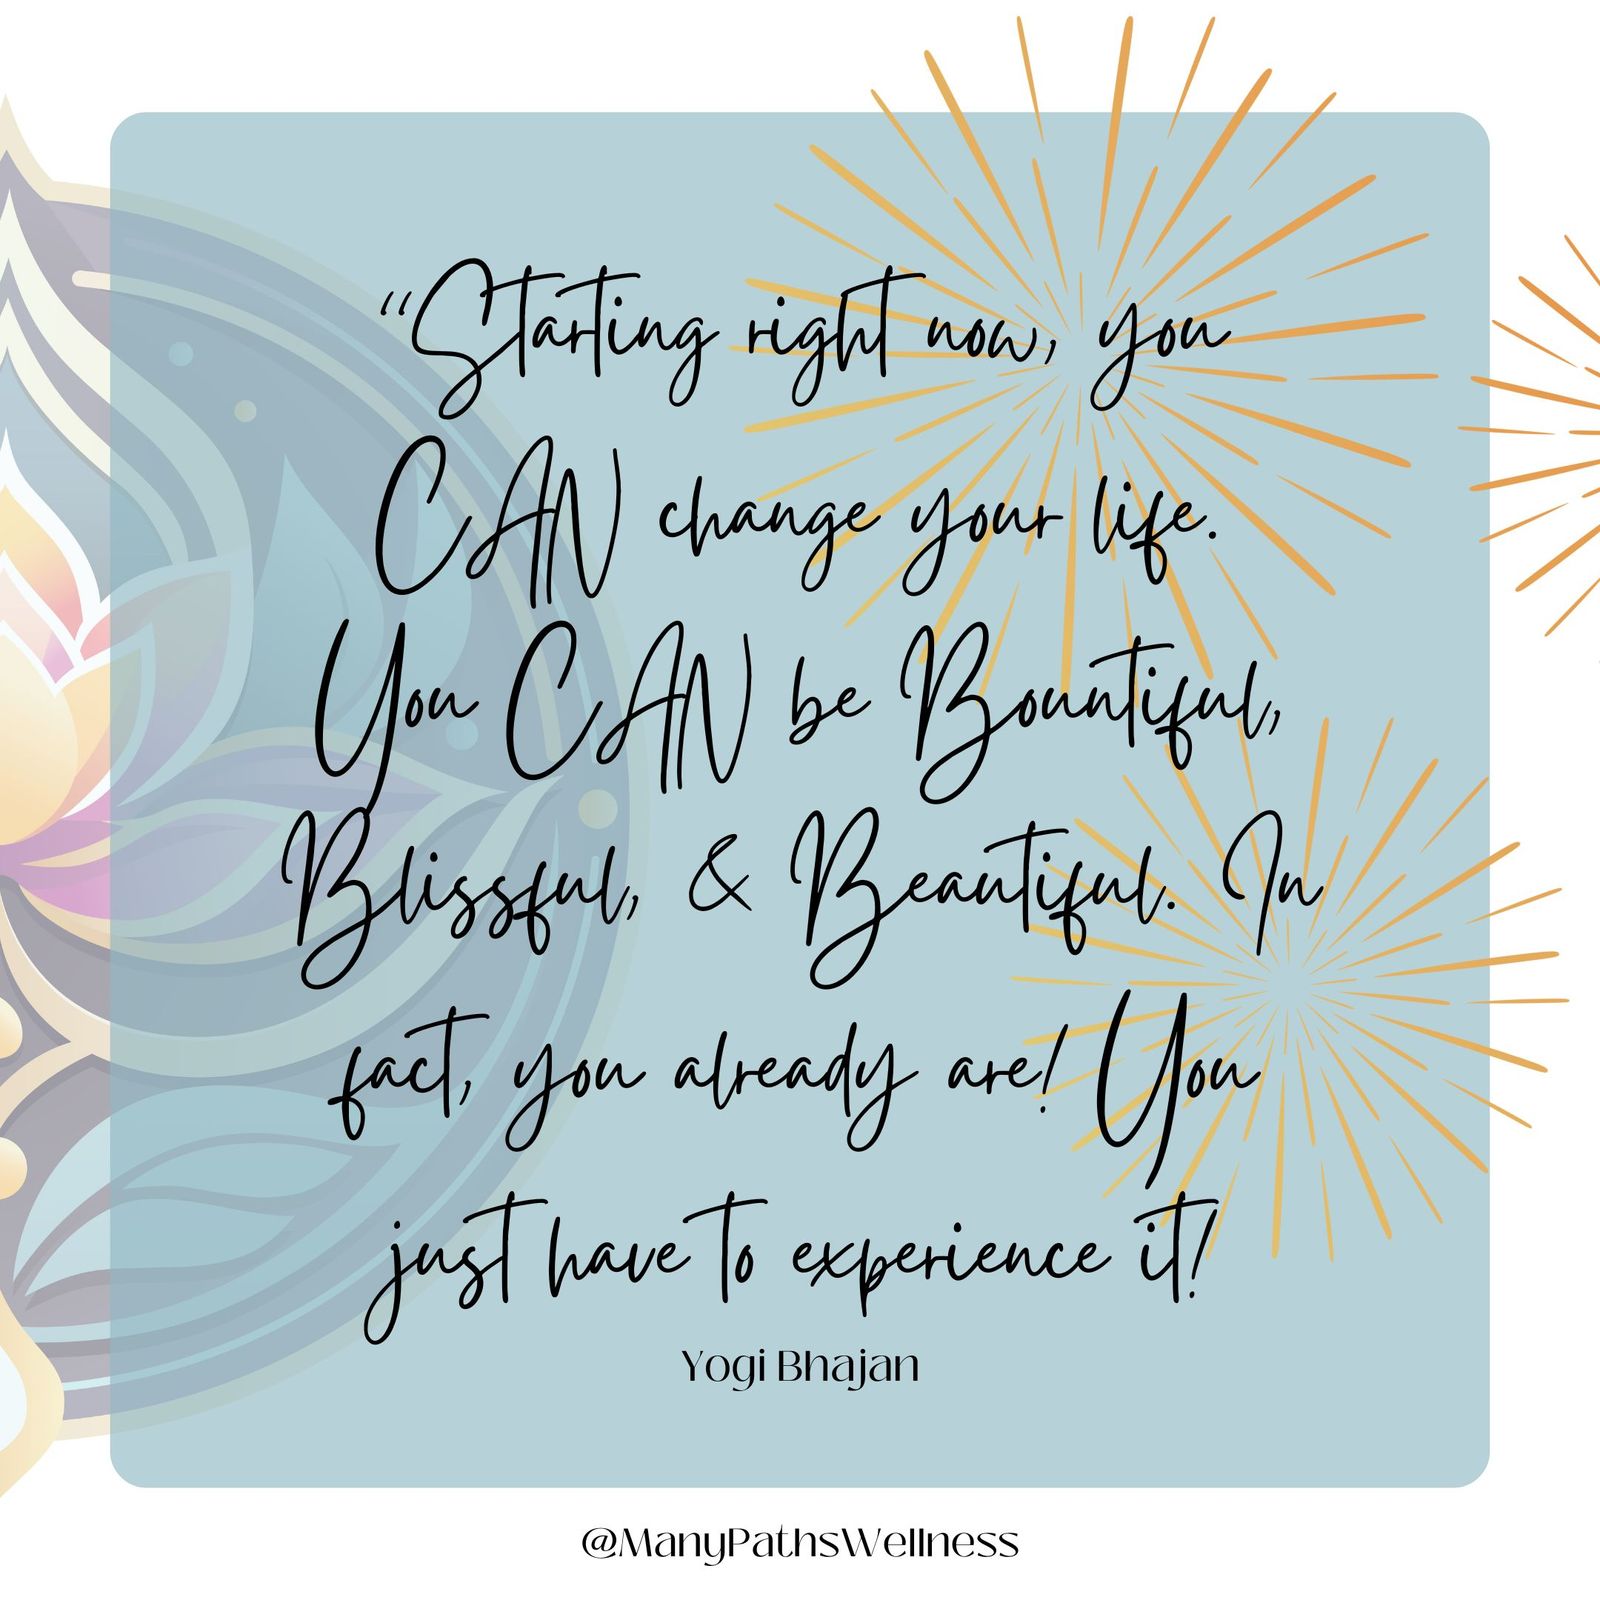 “Starting right now, you
CAN change your life.
You CAN be Bountiful,
Blissful, & Beautiful. In
fact, you already are! You
just have to experience it!
Yogi Bhajan
@ManyPathsWellness